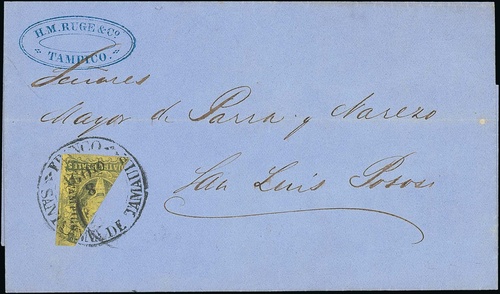 H.M. RUGE & Co.
TAMPICO.
Señores
Mayor de Parra y Narezo
San Luis Potosi
FRANCO
SANTA DE TAMAULIPAS